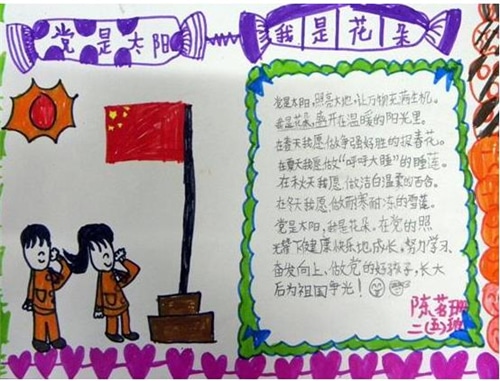 党是太阳
我是花朵
党是太阳,照亮大地,让万物充满生机。
我是花朵,盛开在温暖的阳光里。
在春天我愿做争强好胜的报春花。
在夏天我愿做“呼呼大睡”的睡莲。
在秋天我愿做洁白温柔的百合。
在冬天我愿做耐寒耐冻的雪莲。
党是太阳,我是花朵。在党的照
下健康快乐地成长。努力学习、
奋发向上、做党的好孩子,长大
后为祖国争光!
陈茗珊
二(五)班